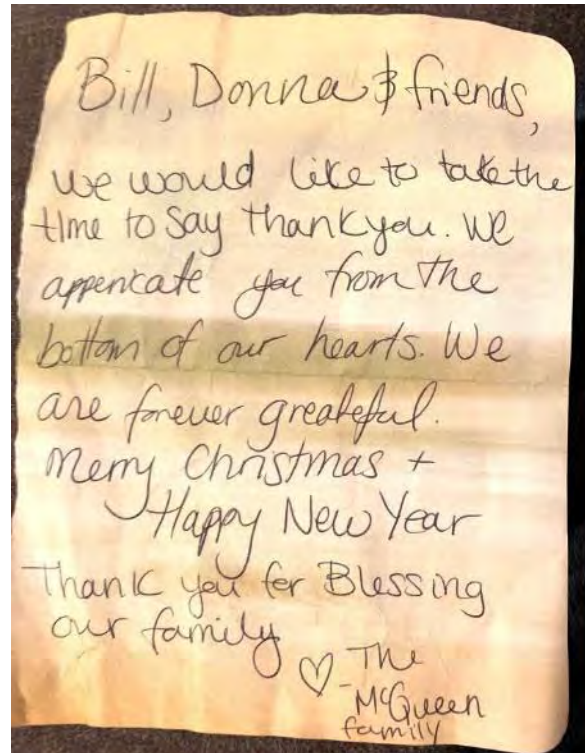 Bill, Donna & friends,
we would like to take the
time to say thankyou. We
appenicate you from the
bottom of our hearts. We
are forever greateful.
Merry Christmas +
Happy New Year
Thank you for Blessing
our family
♡ - The
McQueen
family